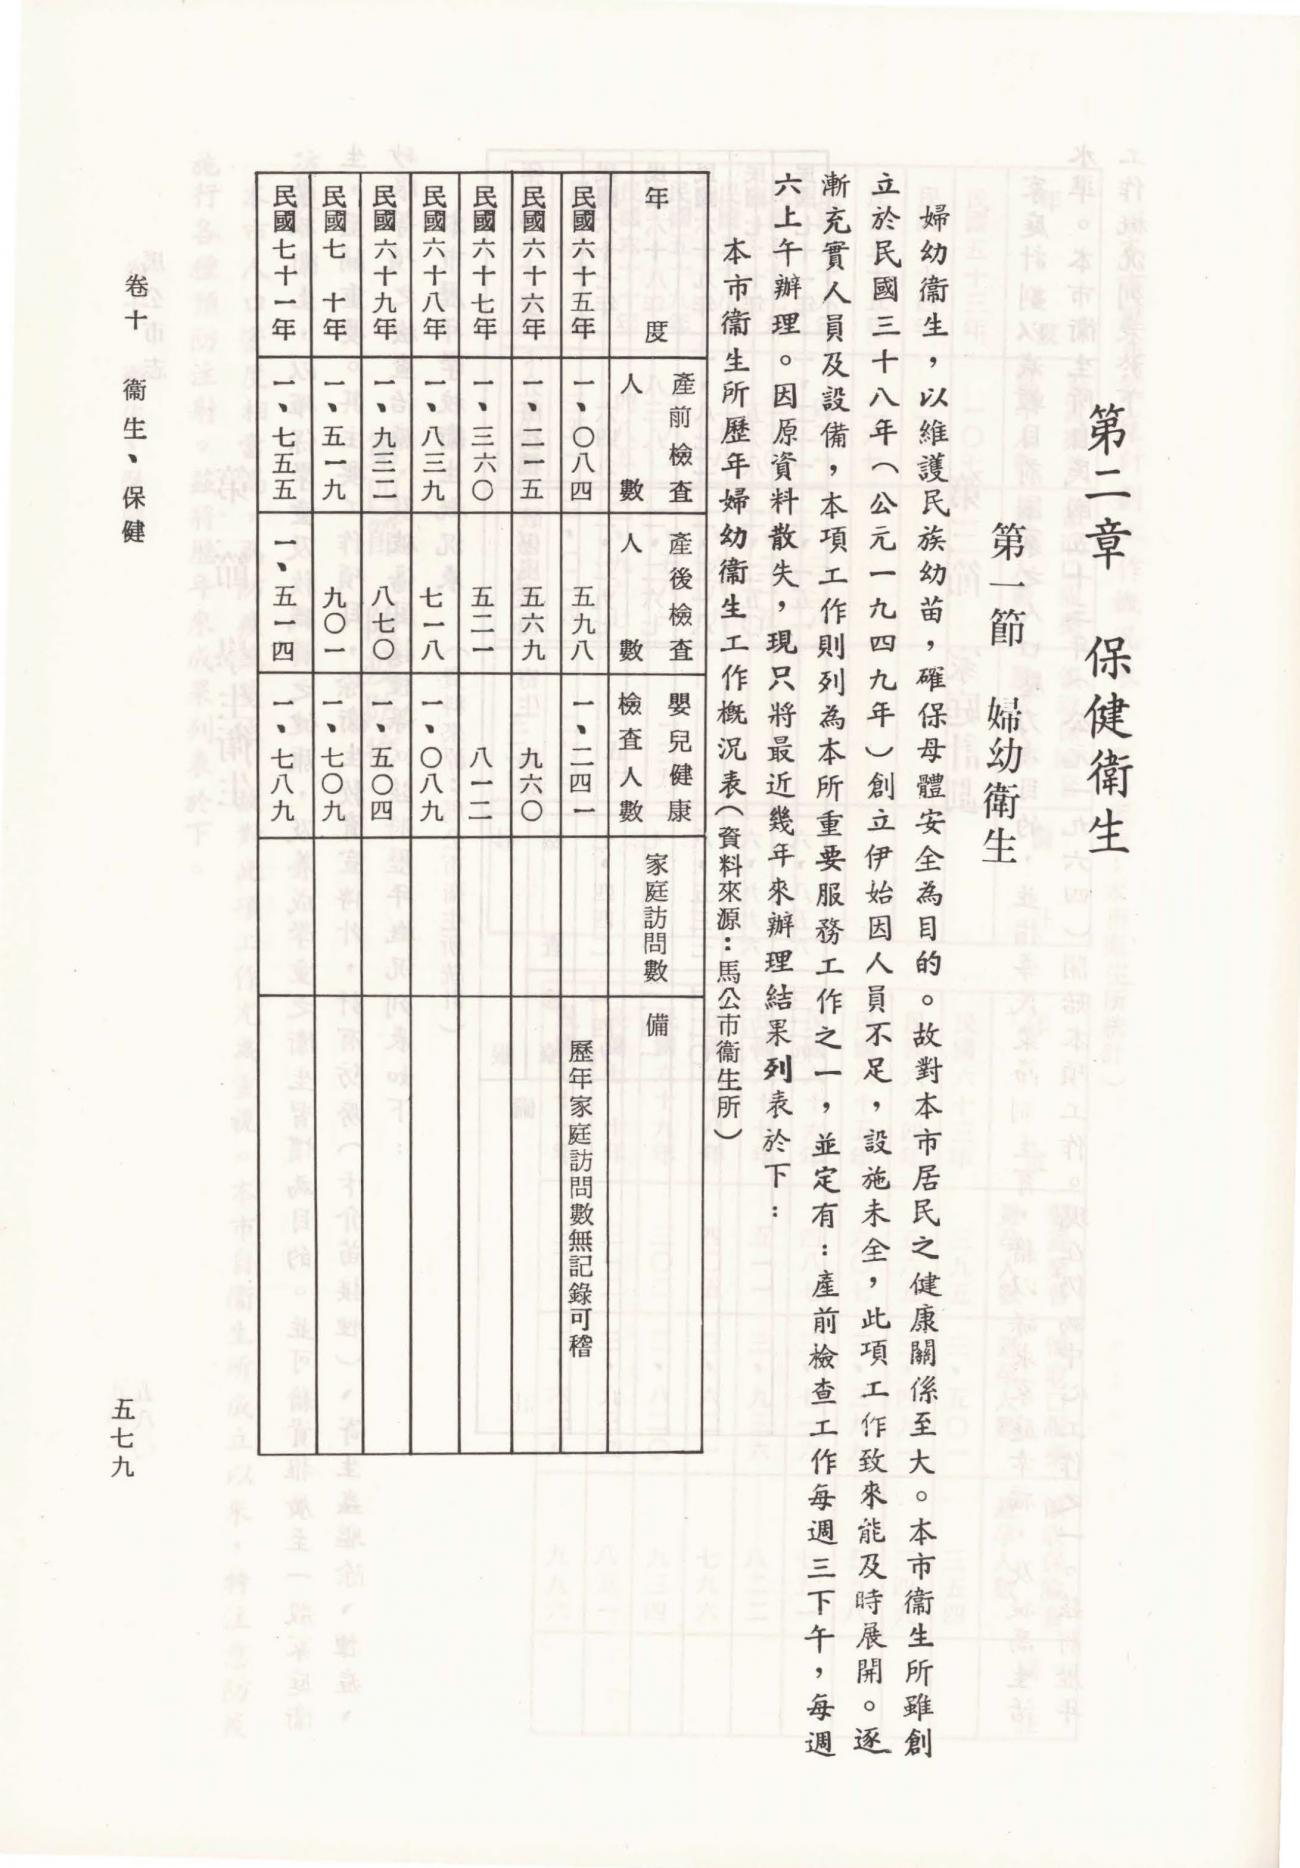 第二章　保健衛生
第一節　婦幼衛生
婦幼衛生，以維護民族幼苗，確保母體安全為目的。故對本市居民之健康關係至大。本市衞生所雖創
立於民國三十八年（公元一九四九年）創立伊始因人員不足，設施未全，此項工作致來能及時展開。逐
漸充實人員及設備，本項工作則列為本所重要服務工作之一，並定有：產前檢查工作每週三下午，每週
六上午辦理。因原資料散失，現只將最近幾年來辦理結果列表於下：
本市衞生所歷年婦幼衞生工作概況表（資料來源：馬公市衞生所）
年度　產前檢查人數　產後檢查人數　嬰兒健康檢查人數　家庭訪問數　備
民國六十五年　一、〇八四　五九八　一、二四一　歷年家庭訪問數無記錄可稽
民國六十六年　一、二一五　五六九　九六〇
民國六十七年　一、三六〇　五二一　八一二
民國六十八年　一、八三九　七一八　一、〇八九
民國六十九年　一、九三二　八七〇　一、五〇四
民國七　十年　一、五一九　九〇一　一、七〇九
民國七十一年　一、七五五　一、五一四　一、七八九
卷十　衞生、保健
五七九